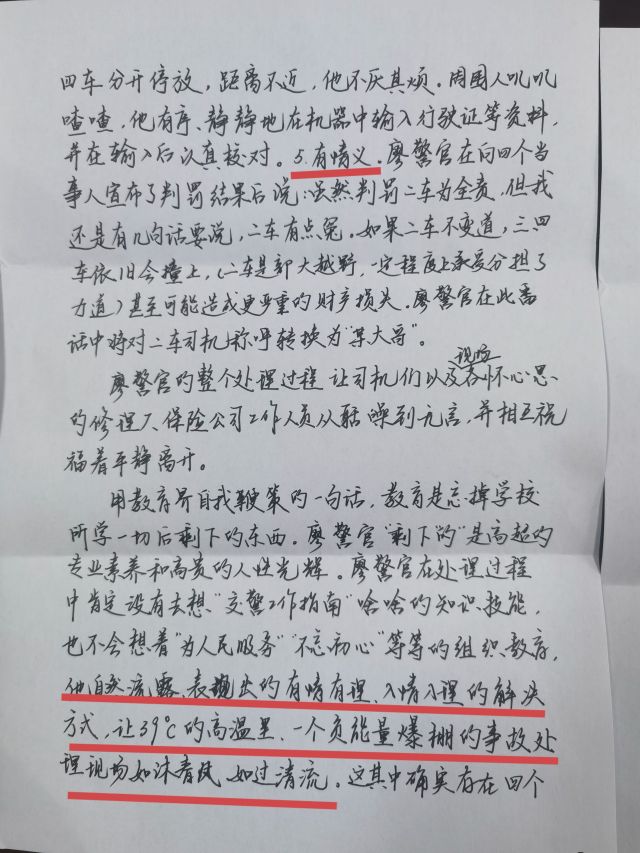 四车分开停放，距离不近，他不厌其烦。周围人叽叽
喳喳，他有序、静静地在机器中输入行驶证等资料，
并在输入后认真核对。5.有情义。廖警官在向四个当
事人宣布了判罚结果后说：虽然判罚二车为全责，但我
还是有几句话要说，二车有点冤。如果二车不变道，三四
车依旧会撞上，（二车是部大越野，一定程度上承受分担了
力道）甚至可能造成更严重的财产损失。廖警官在此番
话中将对二车司机称呼转换为“某大哥”。
廖警官的整个处理过程让司机们以及现场各怀心思
的修理厂、保险公司工作人员从聒噪到无言，并相互祝
福着平静离开。
用教育界自我鞭策的一句话，教育是忘掉学校
所学一切后剩下的东西。廖警官“剩下的”是高超的
专业素养和高贵的人性光辉。廖警官在处理过程
中肯定没有去想“交警工作指南”啥啥的知识、技能，
也不会想着“为人民服务”“不忘初心”等等的组织教育，
他自然流露、表现出的有情有理、入情入理的解决
方式，让39℃的高温里、一个负能量爆棚的事故处
理现场如沐春风，如过清流。这其中确实存在四个